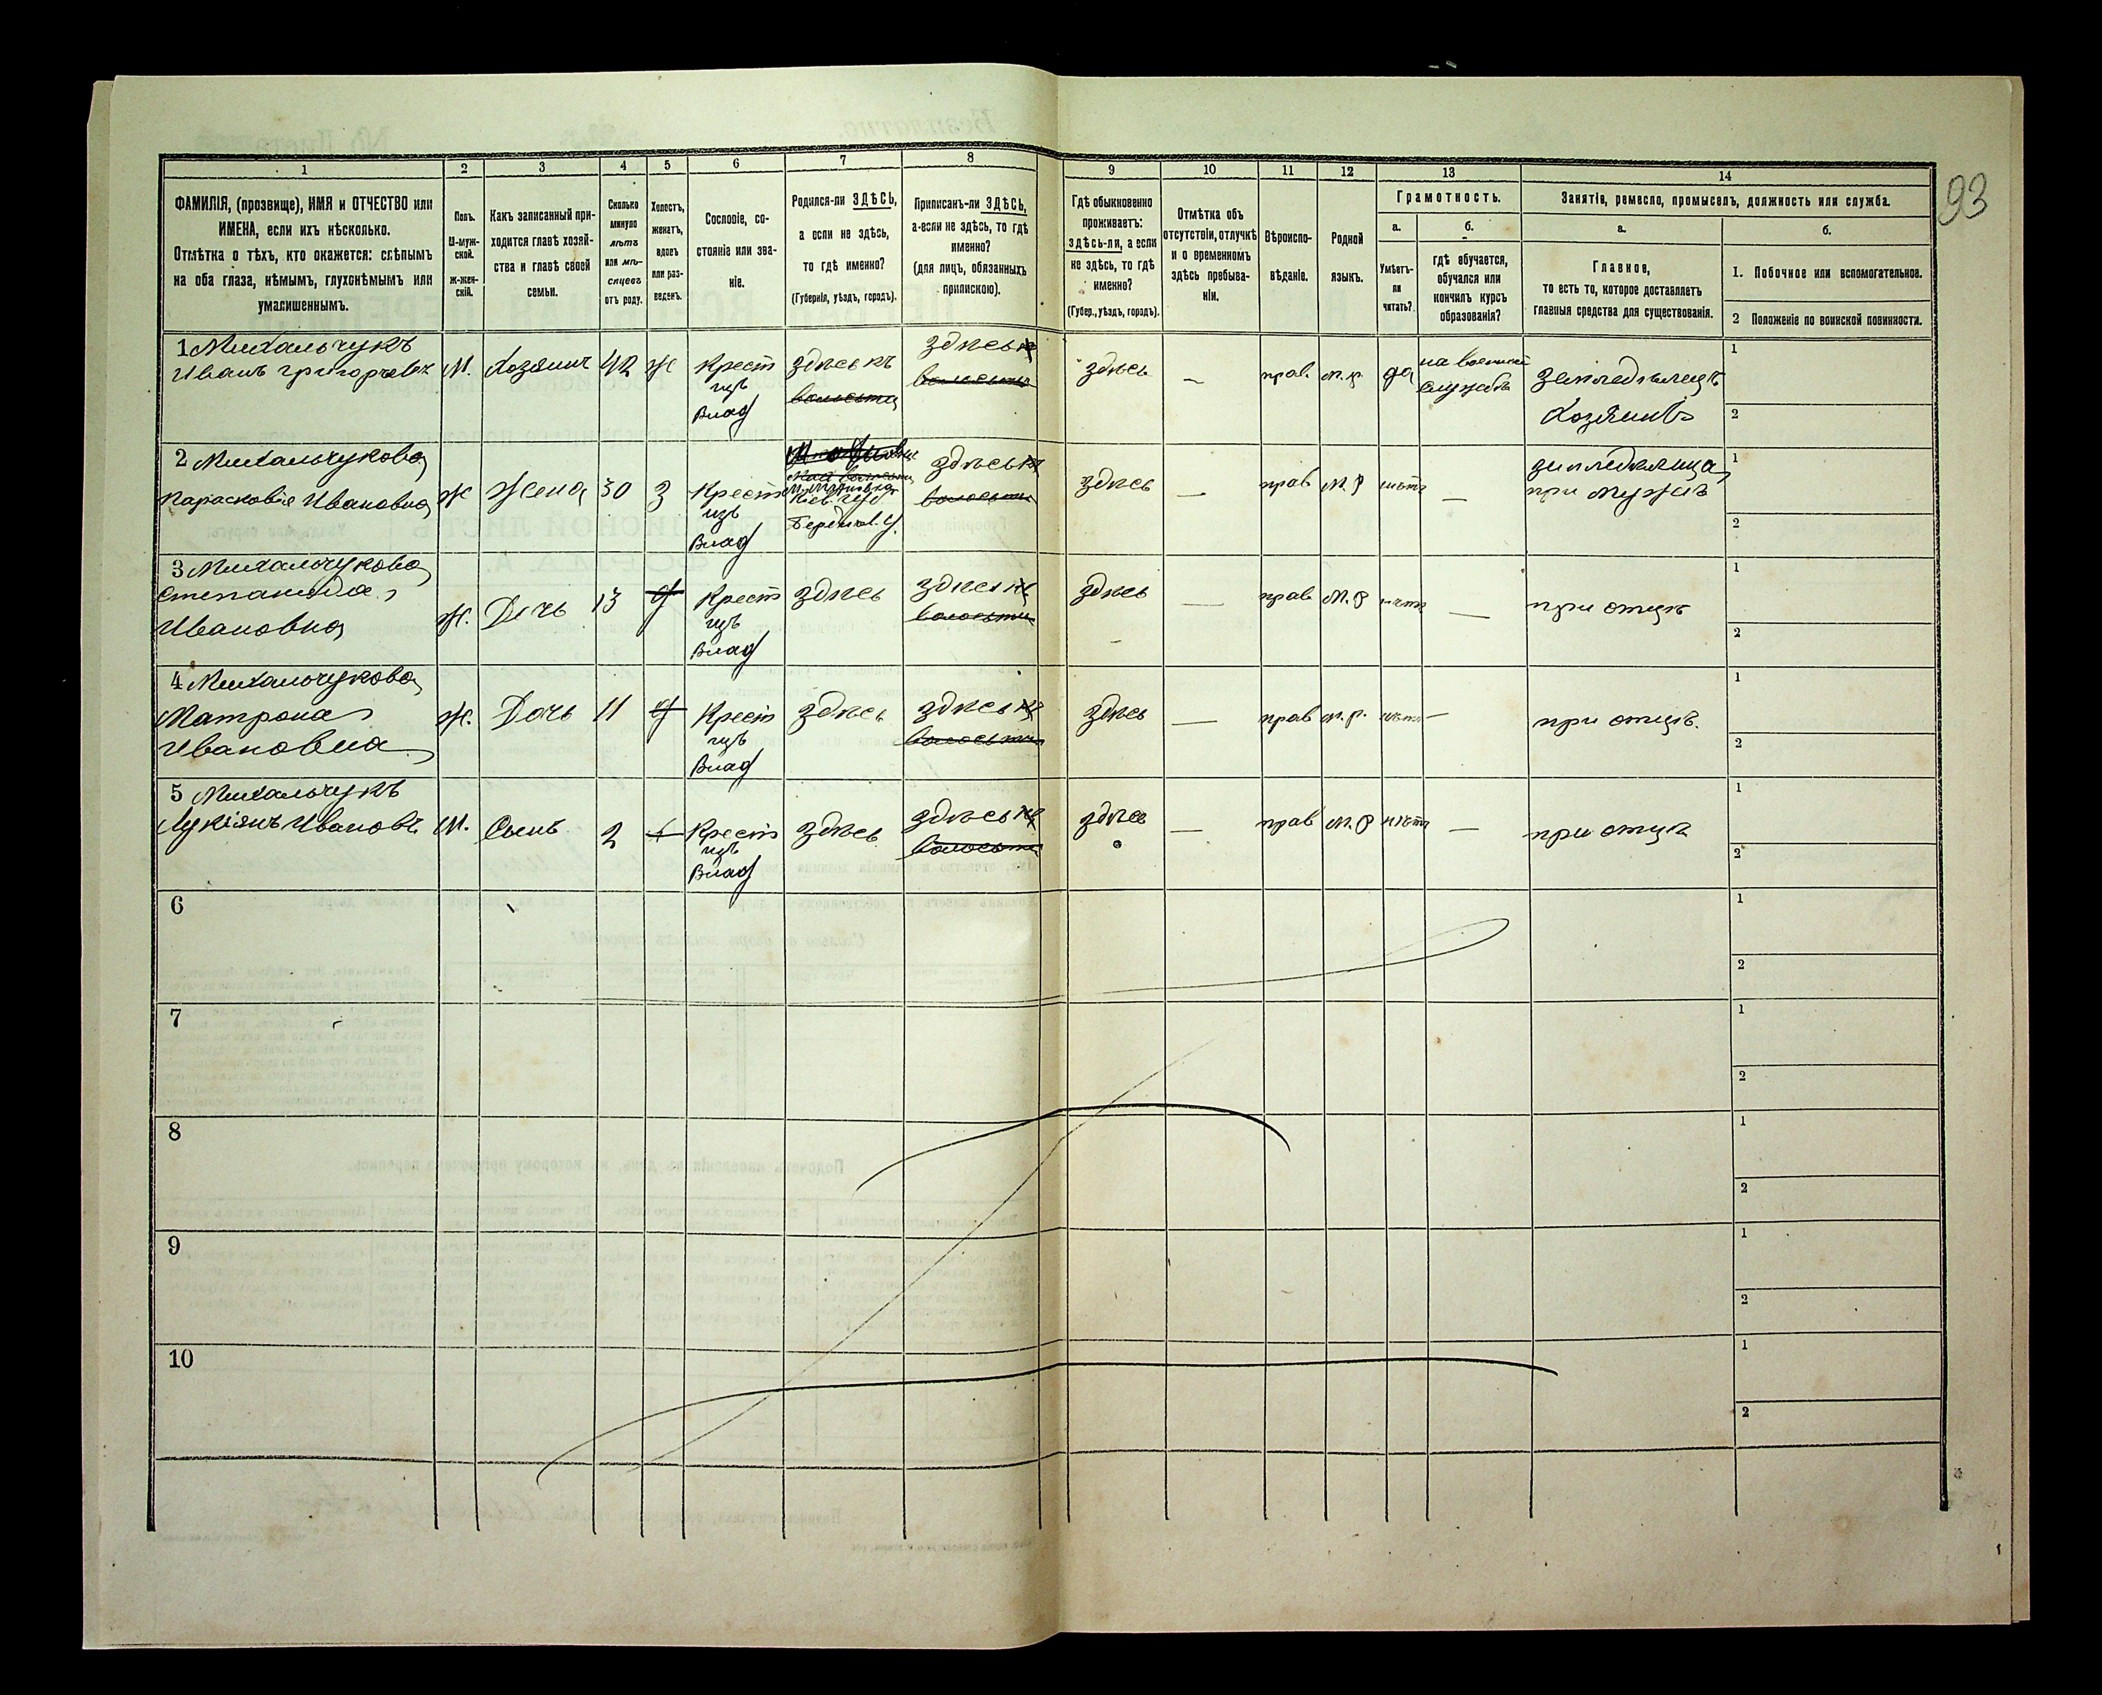 93
1 2 3 4 5 6 7 8 9 10 11 12 13 14
ФАМИЛІЯ, (прозвище), ИМЯ и ОТЧЕСТВО или
ИМЕНА, если ихъ нѣсколько.
Отмѣтка о тѣхъ, кто окажется: слѣпымъ
на оба глаза, нѣмымъ, глухонѣмымъ или
умалишеннымъ.
Полъ.
М-муж-
ской.
Ж-жен-
скій.
Какъ записанный при-
ходится главѣ хозяй-
ства и главѣ своей
семьи.
Сколько
минуло
лѣтъ
или мѣ-
сяцевъ
отъ роду.
Холостъ,
женатъ,
вдовъ
или раз-
веденъ.
Сословіе, со-
стояніе или зва-
ніе.
Родился-ли ЗДѢСЬ,
а если не здѣсь,
то гдѣ именно?
(Губернія, уѣздъ, городъ).
Приписанъ-ли ЗДѢСЬ,
а-если не здѣсь, то гдѣ
именно?
(для лицъ, обязанныхъ
припискою).
Гдѣ обыкновенно
проживаетъ:
здѣсь-ли, а если
не здѣсь, то гдѣ
именно?
(Губер., уѣздъ, городъ).
Отмѣтка объ
отсутствіи, отлучкѣ
и о временномъ
здѣсь пребыва-
ніи.
Вѣроиспо-
вѣданіе.
Родной
языкъ.
Грамотность.
а.
Умѣетъ-
ли
читать?
б.
гдѣ обучается,
обучался или
кончилъ курсъ
образованія?
Занятіе, ремесло, промыселъ, должность или служба.
а.
Главное,
то есть то, которое доставляетъ
главныя средства для существованія.
б.
1. Побочное или вспомогательное.
2 Положеніе по воинской повинности.
1 Михальчукъ
Иванъ Григорьевъ
М.
Хозяинъ
42
ж
Крест
изъ
Влад
здѣсь
волости
здѣсь
волости
здѣсь
—
прав.
м.р.
да
на военной
службѣ
земледѣлецъ
хозяинъ
1
2
2 Михальчукова
Парасковія Ивановна
Ж
Жена
30
З
Крест
изъ
Влад
Кіев губ
Бердичев. У.
здѣсь
волости
здѣсь
—
прав
м.р
нѣтъ
—
земледѣлица
при мужѣ
1
2
3 Михальчукова
Степанида
Ивановна
Ж.
Дочь
13
Крест
изъ
Влад
здѣсь
здѣсь
волости
здѣсь
—
прав
м.р
нѣтъ
—
при отцѣ
1
2
4 Михальчукова
Матрона
Ивановна
Ж.
Дочь
11
Крест
изъ
Влад
здѣсь
здѣсь
волости
здѣсь
—
прав
м.р.
нѣтъ
—
при отцѣ.
1
2
5 Михальчукъ
Лукіянъ Ивановъ
М.
Сынъ
2
Крест
изъ
Влад
здѣсь
здѣсь
волости
здѣсь
—
прав
м.р
нѣтъ
—
при отцѣ
1
2
6
1
2
7
1
2
8
1
2
9
1
2
10
1
2